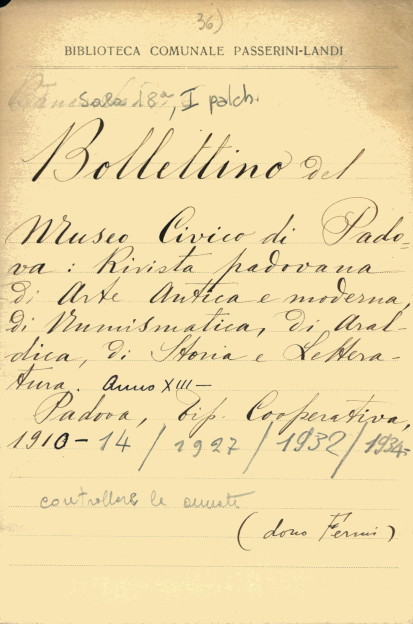 36)
BIBLIOTECA COMUNALE PASSERINI-LANDI
Sala 18a, I palch.
Bollettino del
Museo Civico di Pado=
va : Rivista padovana
di Arte Antica e moderna,
di Numismatica, di Aral-
dica, di Storia e Lettera-
tura. Anno XIII-
Padova, Tip. Cooperativa,
1910-14 / 1927 / 1932 / 1934-
controllare le annate
(dono Fermi)